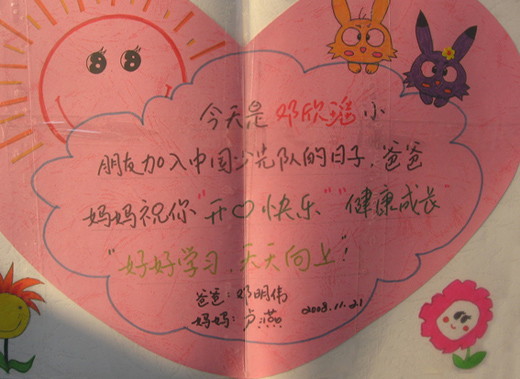 今天是邓欣瑶小
朋友加入中国少先队的日子，爸爸
妈妈祝你"开口快乐""健康成长"
"好好学习，天天向上"！
爸爸：邓明伟
妈妈：卢燕 2008.11.21